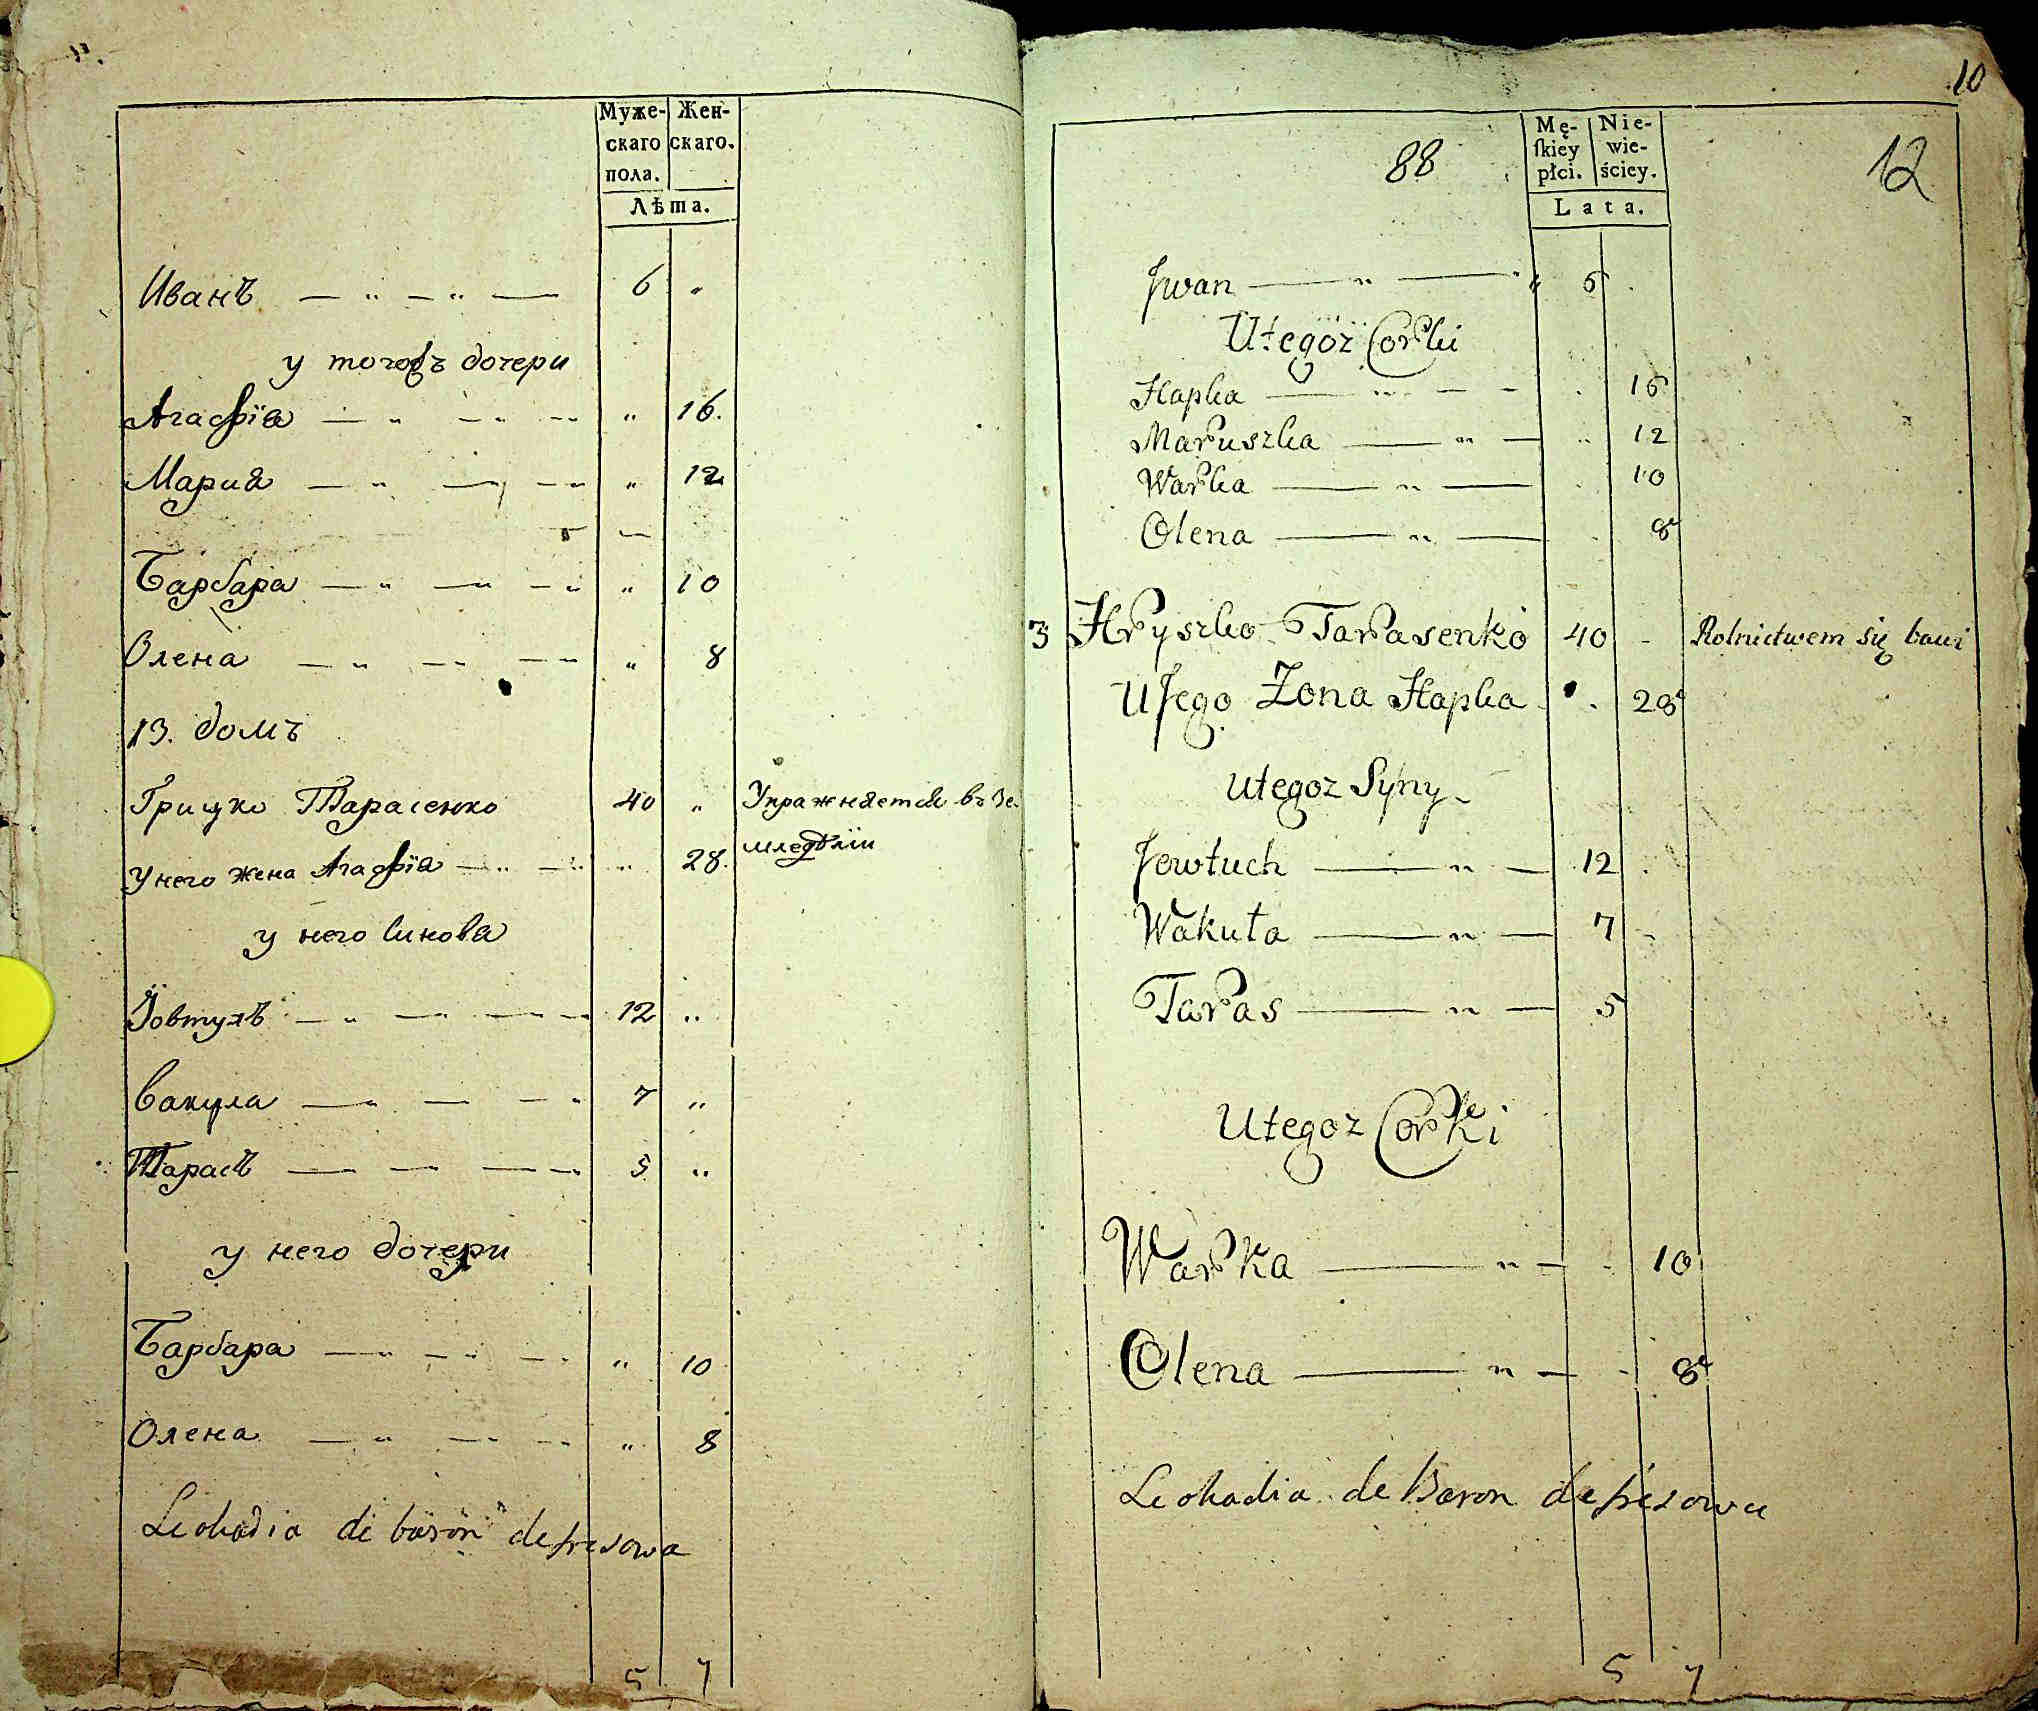 Муже-
скаго
пола.
Жен-
скаго.
Лѣта.
Иванъ 6 „
у тогожъ дочери
Агафїа „ 16.
Мария „ 12
Барбара „ 10
Олена „ 8
13. домъ
Грицко Тарасенко 40 „ Упражняетса въ Зе
у него жена Агафїа „ 28. мледѣлїи
у него синова
Їовтухъ 12 „
Вакула 7 „
Тарасъ 5 „
у него дочери
Барбара „ 10
Олена „ 8
Leokadia de baron depresowa
5 7
10
88
12
Mę-
ſkiey
płci.
Nie-
wie-
ściey.
Lata.
Jwan 6
Utegoz Corki
Hapka 16
Maruszka 12
Warka 10
Olena 8
3 Hryszko Tarasenko 40 - Rolnictwem się bawi
U Jego Zona Hapka 28
Utegoz Syny
Jewtuch 12
Wakuła 7
Taras 5
Utegoz Corki
Warka 10
Olena 8
Leokadia de Baron depresowa
5 7